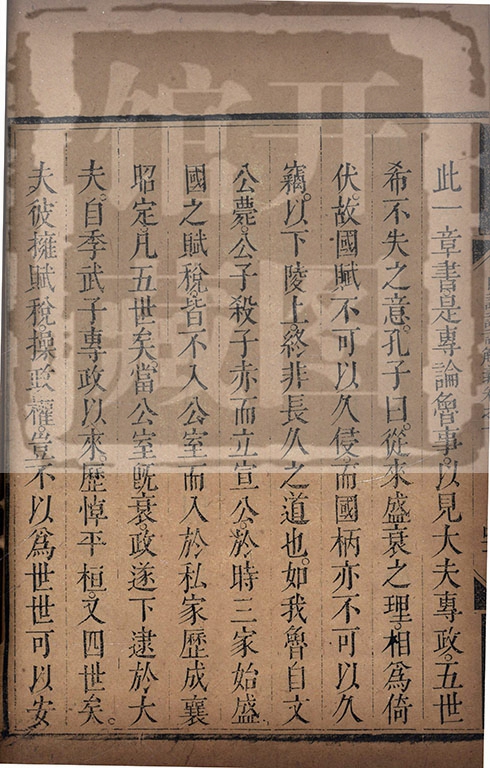 此一章書是專論魯事。以見大夫專政。五世
希不失之意。孔子曰。從來盛衰之理。相爲倚
伏。故國賦不可以久侵。而國柄亦不可以久
竊。以下陵上。終非長久之道也。如我魯自文
公薨。公子殺子赤而立宣公。於時三家始盛
國之賦稅。皆不入公室而入於私家。歷成襄
昭定。凡五世矣。當公室旣衰。政遂下逮於大
夫。自季武子專政以來。歷悼平桓。又四世矣。
夫彼擁賦稅操政權。豈不以爲世世可以安